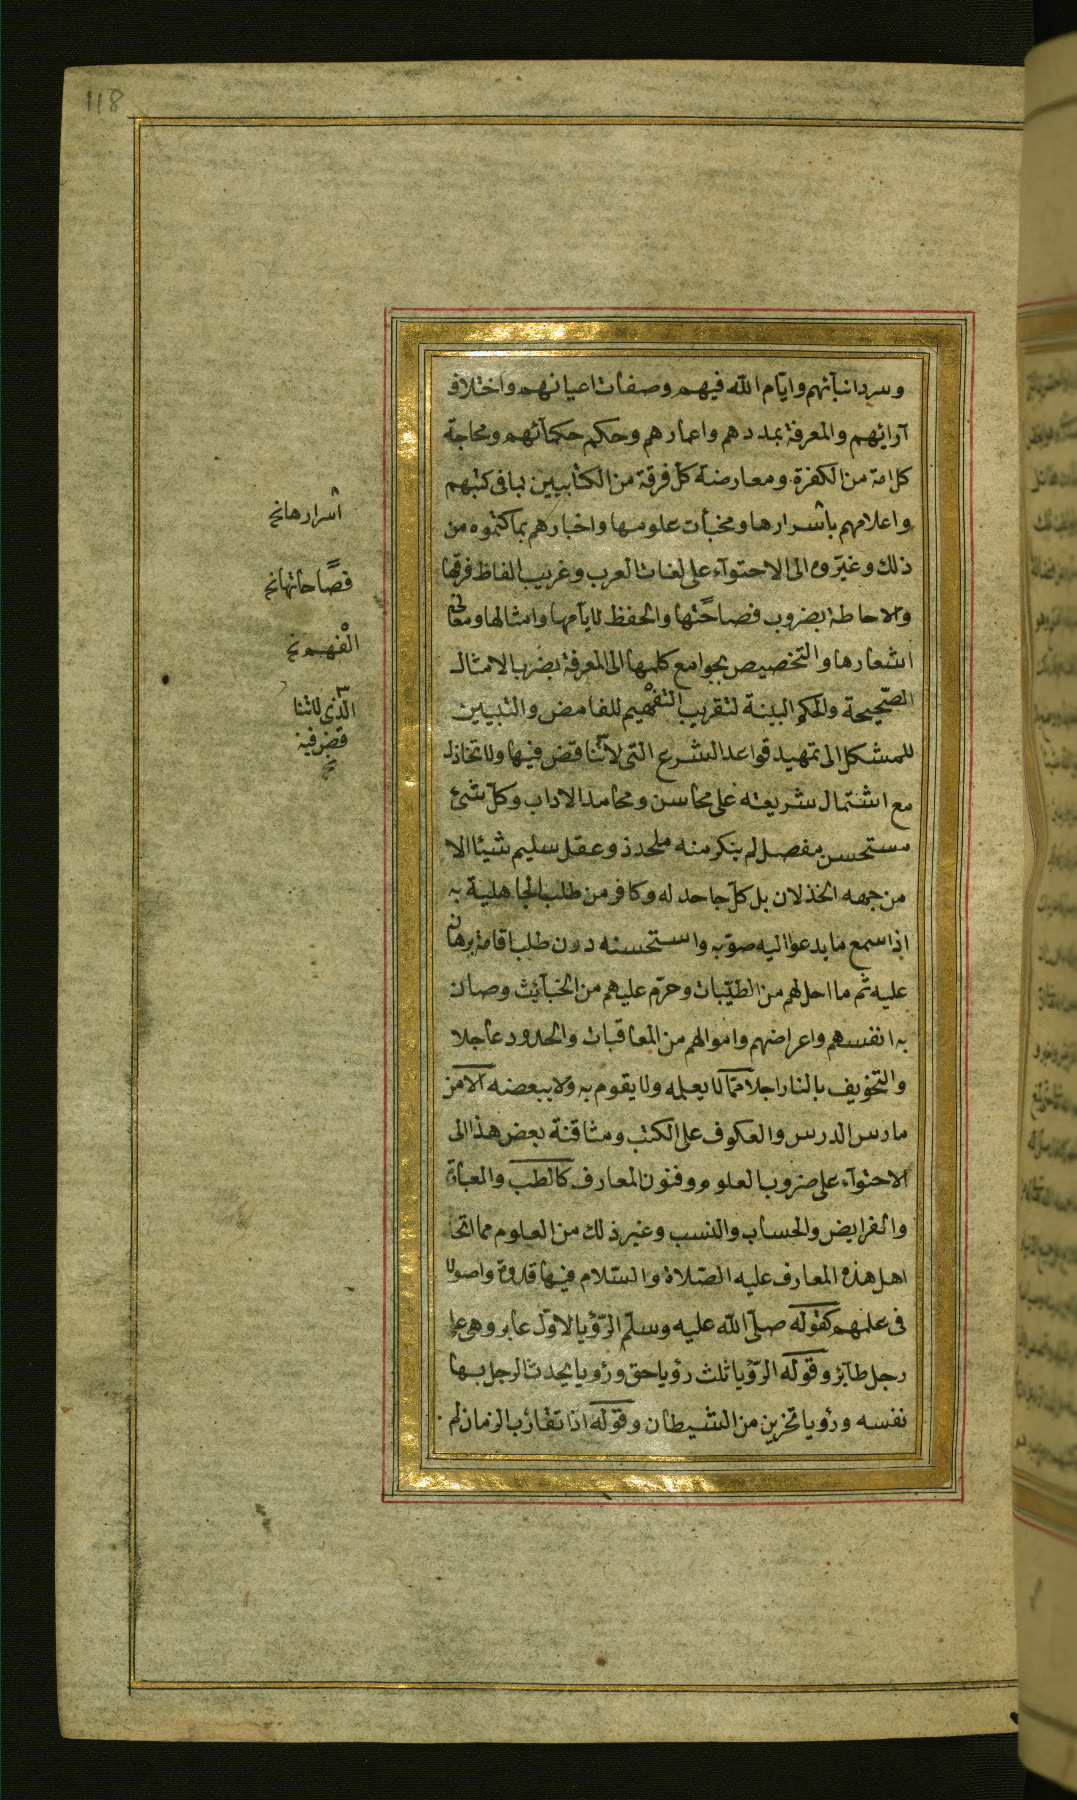 118
وسرد انبآئهم وايّام اللّه فيهم وصفات اعيانهم واختلاف
آرائهم والمعرفة بمددهم واعمارهم وحكم حكمآئهم ومحاجّة
كل امة من الكفرة ومعارضة كل فرقة من الكتابيين بما فى كتبهم
واعلامهم باسرارها ومخبأت علومها واخبارهم بما كتموه من
ذلك وغيّروه الى الاحتوآء على لغات العرب وغريب الفاظ فرقها
والاحاطة بضروب فصاحتها والحفظ لايآمها وامثالها ومعانى
اشعارها والتخصيص بجوامع كلمها الى المعرفة بضرب الامثال
الصّحيحة والحكم البينة لتقريب التفهيم للغامض والتبيين
للمشكل الى تمهيد قواعد الشرع التى لا تناقض فيها ولا تخاذل
مع اشتمال شريعته على محاسن ومحامد الاداب وكلّ شئ
مستحسن مفصل لم ينكر منه ملحد ذو عقل سليم شيئا الا
من جهه الخذلان بل كلّ جاحد له وكافر من طلب الجاهلية به
اذا سمع ما يدعوا اليه صوّبه واستحسنه دون طلب اقامة برهان
عليه ثم ما احل لهم من الطيّبات وحرّم عليهم من الخبآئث وصان
به انفسهم واعراضهم واموالهم من المعاقبات والحدود عاجلا
والتخويف بالنار اجلا ممّا لا يعلمه ولا يقوم به ولا ببعضه الا من
مارس الدرس والعكوف على الكتب ومثافنة بعض هذا الى
الاحتوآء على ضروب العلوم وفنون المعارف كالطب والعبارة
والفرايض والحساب والنسب وغير ذلك من العلوم مما اتخذ
اهل هذه المعارف عليه الصّلاة والسّلام فيها قدوة واصولا
فى علمهم كقوله صلّى اللّه عليه وسلّم الرّؤيا لاوّل عابر وهى على
رجل طآئر وقوله الرّؤيا ثلث رؤيا حق ورؤيا يحدث الرجل بها
نفسه ورؤيا تحزين من الشيطان وقوله اذا تقارب الزمان لم
اسرارها نخ
فصاحاتها نخ
الفهم نخ
الّذى لا تنا
قض فيه
نخ